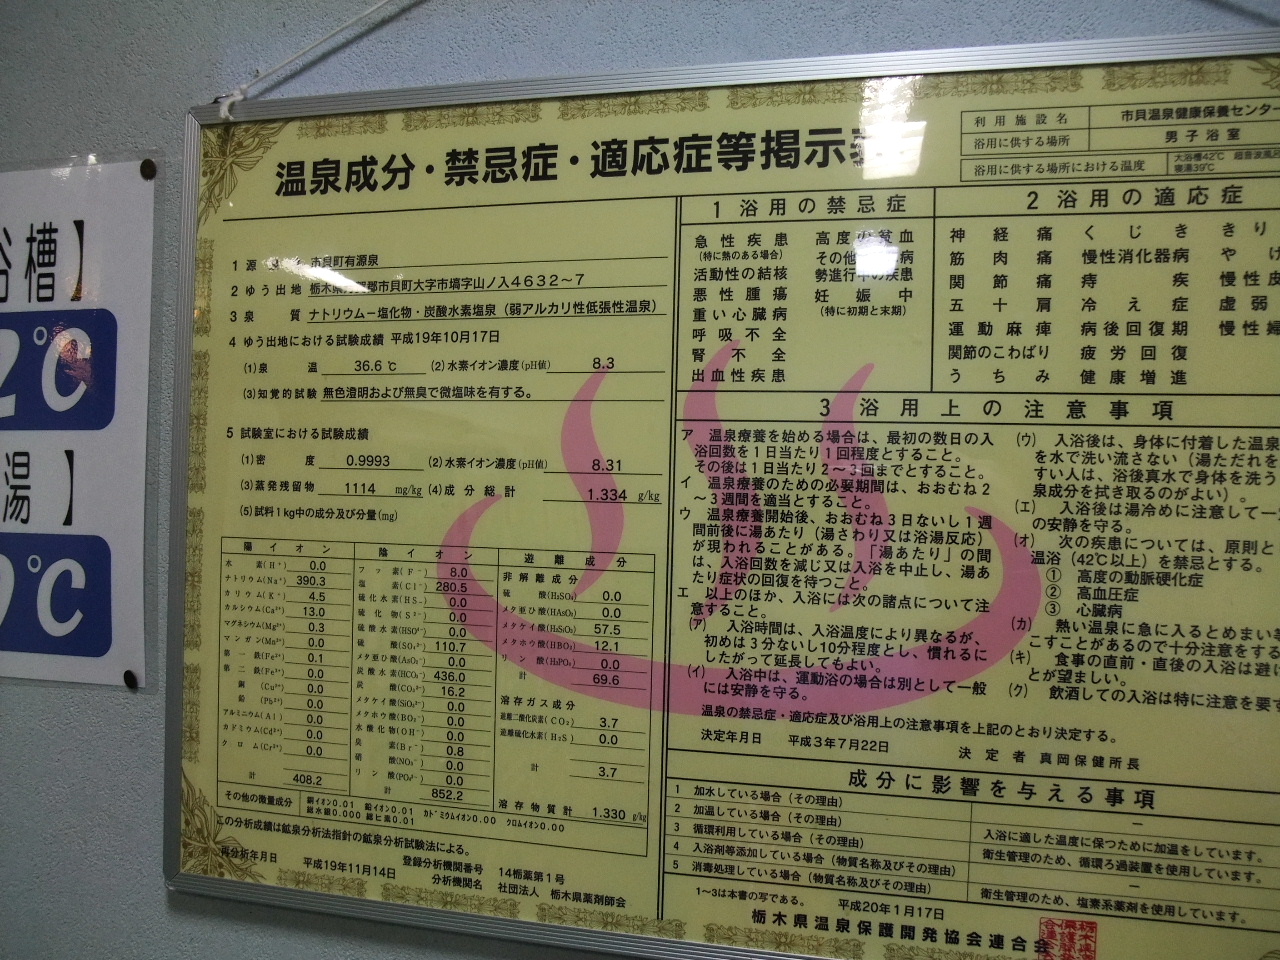 浴槽】
2℃
湯】
9℃
温泉成分・禁忌症・適応症等掲示
利用施設名 市貝温泉健康保養センター
浴用に供する場所 男子浴室
浴用に供する場所における温度 大浴槽42℃ 寝湯39℃
1 源 市貝町有源泉
2 ゆう出地 栃木県 郡市貝町大字市塙字山ノ入4632〜7
3 泉質 ナトリウム−塩化物・炭酸水素塩泉（弱アルカリ性低張性温泉）
4 ゆう出地における試験成績 平成19年10月17日
(1)泉温 36.6℃ (2)水素イオン濃度(pH値) 8.3
(3)知覚的試験 無色澄明および無臭で微塩味を有する。
5 試験室における試験成績
(1)密度 0.9993 (2)水素イオン濃度(pH値) 8.31
(3)蒸発残留物 1114 mg/kg (4)成分総計 1.334 g/kg
(5)試料1kg中の成分及び分量(mg)
陽イオン
水素(H⁺) 0.0
ナトリウム(Na⁺) 390.3
カリウム(K⁺) 4.5
カルシウム(Ca²⁺) 13.0
マグネシウム(Mg²⁺) 0.3
マンガン(Mn²⁺) 0.0
第一鉄(Fe²⁺) 0.1
第二鉄(Fe³⁺) 0.0
銅(Cu²⁺) 0.0
鉛(Pb²⁺) 0.0
アルミニウム(Al) 0.0
カドミウム(Cd²⁺) 0.0
クロム(Cr³⁺) 0.0
計 408.2
陰イオン
フッ素(F⁻) 8.0
塩素(Cl⁻) 280.5
硫化水素(HS⁻) 0.0
硫化物(S²⁻) 0.0
硫酸水素(HSO⁴⁻) 0.0
硫酸(SO₄²⁻) 110.7
メタ亜ヒ酸(AsO₂⁻) 0.0
炭酸水素(HCO₃⁻) 436.0
炭酸(CO₃²⁻) 16.2
メタケイ酸(SiO₃²⁻) 0.0
メタホウ酸(BO₂⁻) 0.0
水酸化物(OH⁻) 0.0
臭素(Br⁻) 0.8
硝酸(NO₃⁻) 0.0
リン酸(PO₄³⁻) 0.0
計 852.2
遊離成分
非解離成分
硫酸(H₂SO₄) 0.0
メタ亜ひ酸(HAsO₂) 0.0
メタケイ酸(H₂SiO₃) 57.5
メタホウ酸(HBO₂) 12.1
リン酸(H₃PO₄) 0.0
計 69.6
溶存ガス成分
遊離二酸化炭素(CO₂) 3.7
遊離硫化水素(H₂S) 0.0
計 3.7
溶存物質計 1.330 g/kg
その他の微量成分 銅イオン0.01 鉛イオン0.01 カドミウムイオン0.00 クロムイオン0.00
総水銀0.000 総ヒ素0.01
この分析成績は鉱泉分析法指針の鉱泉分析試験法による。
再分析年月日 平成19年11月14日 登録分析機関番号 14栃薬第1号
分析機関名 社団法人 栃木県薬剤師会
1 浴用の禁忌症
急性疾患
(特に熱のある場合)
活動性の結核
悪性腫瘍
重い心臓病
呼吸不全
腎不全
出血性疾患
高度の貧血
その他 病
勢進行中の疾患
妊娠中
(特に初期と末期)
2 浴用の適応症
神経痛 くじき きり
筋肉痛 慢性消化器病 やけ
関節痛 痔疾 慢性皮
五十肩 冷え症 虚弱
運動麻痺 病後回復期 慢性婦
関節のこわばり 疲労回復
うちみ 健康増進
3 浴用上の注意事項
ア 温泉療養を始める場合は、最初の数日の入
浴回数を1日当たり1回程度とすること。
その後は1日当たり2〜3回までとすること。
イ 温泉療養のための必要期間は、おおむね2
〜3週間を適当とすること。
ウ 温泉療養開始後、おおむね3日ないし1週
間前後に湯あたり（湯さわり又は浴湯反応）
が現われることがある。「湯あたり」の間
は、入浴回数を減じ又は入浴を中止し、湯あ
たり症状の回復を待つこと。
エ 以上のほか、入浴には次の諸点について注
意すること。
(ア) 入浴時間は、入浴温度により異なるが、
初めは3分ないし10分程度とし、慣れるに
したがって延長してもよい。
(イ) 入浴中は、運動浴の場合は別として一般
には安静を守る。
(ウ) 入浴後は、身体に付着した温泉
を水で洗い流さない（湯ただれを
すい人は、浴後真水で身体を洗う
泉成分を拭き取るのがよい）。
(エ) 入浴後は湯冷めに注意して一定
の安静を守る。
(オ) 次の疾患については、原則と
温浴（42℃以上）を禁忌とする。
① 高度の動脈硬化症
② 高血圧症
③ 心臓病
(カ) 熱い温泉に急に入るとめまい等
こすことがあるので十分注意をする
(キ) 食事の直前・直後の入浴は避
とが望ましい。
(ク) 飲酒しての入浴は特に注意を要す
温泉の禁忌症・適応症及び浴用上の注意事項を上記のとおり決定する。
決定年月日 平成3年7月22日 決定者 真岡保健所長
成分に影響を与える事項
1 加水している場合（その理由） ―
2 加温している場合（その理由） 入浴に適した温度に保つために加温をしています。
3 循環利用している場合（その理由） 衛生管理のため、循環ろ過装置を使用しています。
4 入浴剤等添加している場合（物質名称及びその理由） ―
5 消毒処理している場合（物質名称及びその理由） 衛生管理のため、塩素系薬剤を使用しています。
1〜3は本書の写である。 平成20年1月17日
栃木県温泉保護開発協会連合会